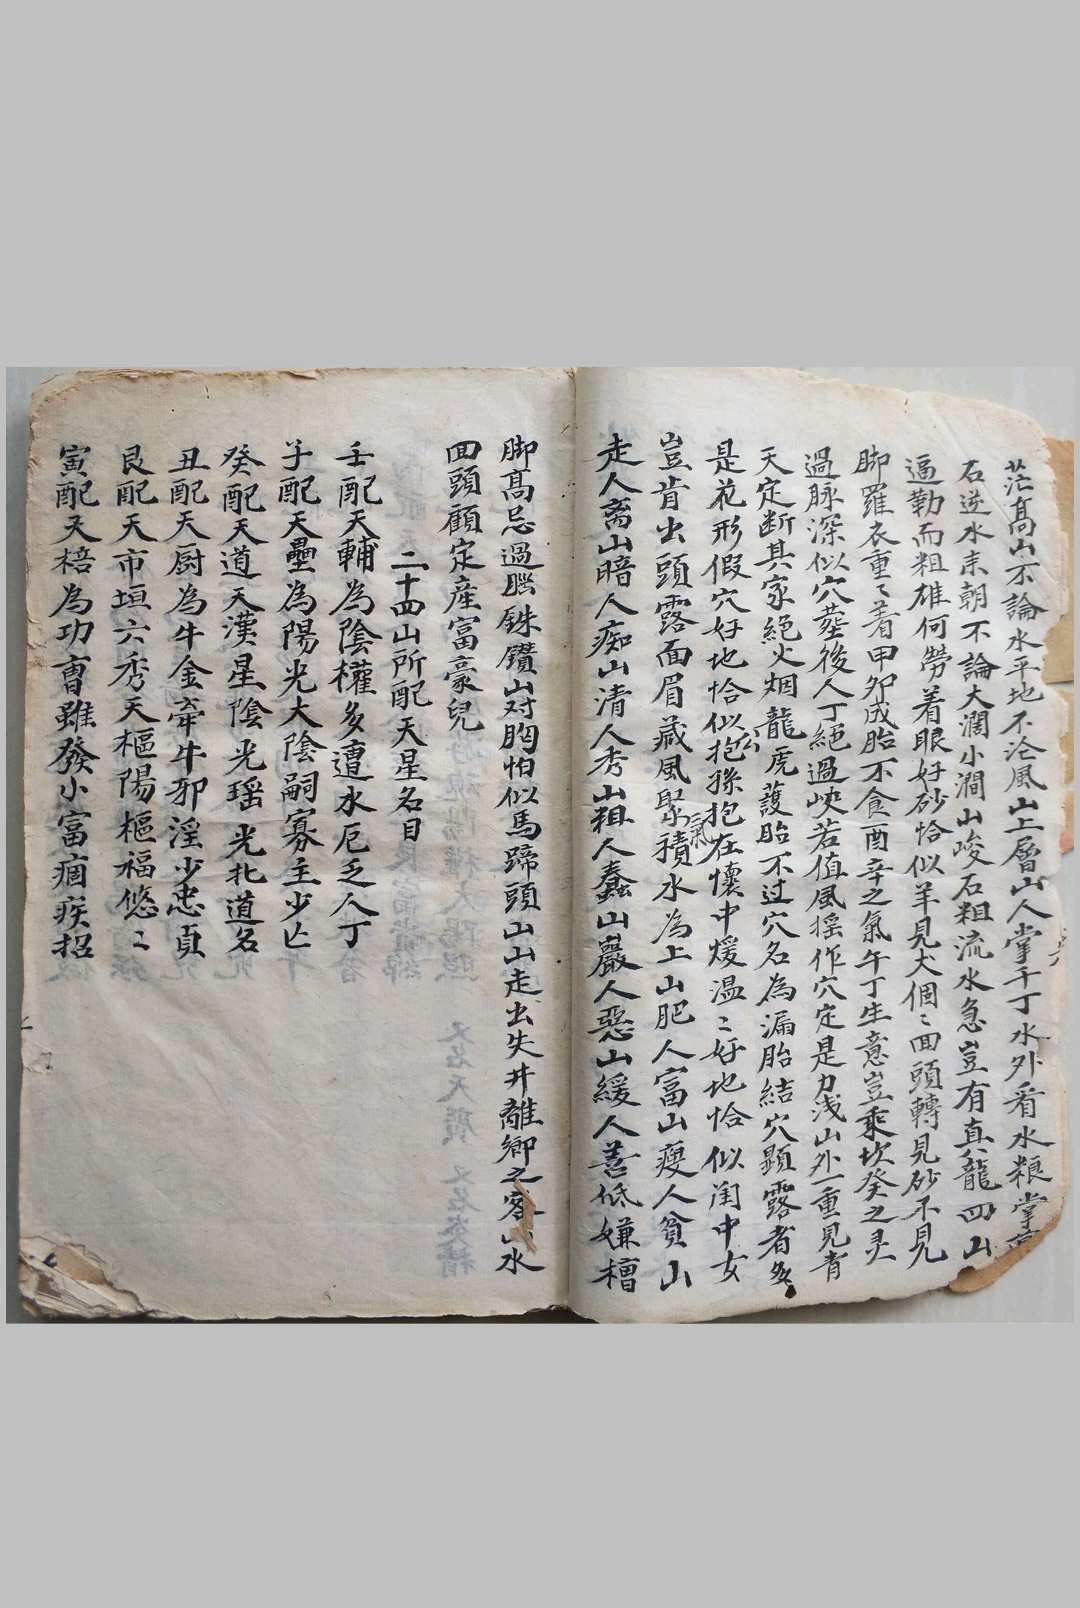 茫高山不論水平地不論風山上層山人掌千丁水外看水粮掌
石逆水來朝不論大澗小澗山峻石粗流水急豈有真龍四山
逼勒而粗雄何勞着眼好砂恰似羊見犬個〻面頭轉見砂不見
脚羅衣重〻着甲卯成胎不食酉辛之氣午丁生意豈乘坎癸之灵
過脉深似穴塟後人丁絕過峽若值風摇作穴定是力浅山外一重見青
天定断其家絕火烟龍虎護胎不过穴名為漏胎結穴顕露者
是花形假穴好地恰似公抱孫抱在懷中煖温〻好地恰似闺中女
豈肯出頭露面眉藏風聚氣積水為上山肥人富山瘦人貧山
走人离山暗人痴山清人秀山粗人蠢山巖人惡山緩人善低嫌槽
脚高忌過腦銖鑽山对胸怕似馬蹄頭山山走出失井離鄉之客水
面頭顧定産富豪兒
二十四山所配天星名目
壬配天輔為陰權多遭水厄乏人丁
子配天壘為陽光大陰嗣寡主少亡
癸配天道天漢星陰光瑶光北道名
丑配天厨為牛金牽牛邪淫少忠貞
艮配天市垣六秀天樞陽樞福悠〻
寅配天棓為功曹雖發小富痼疾招